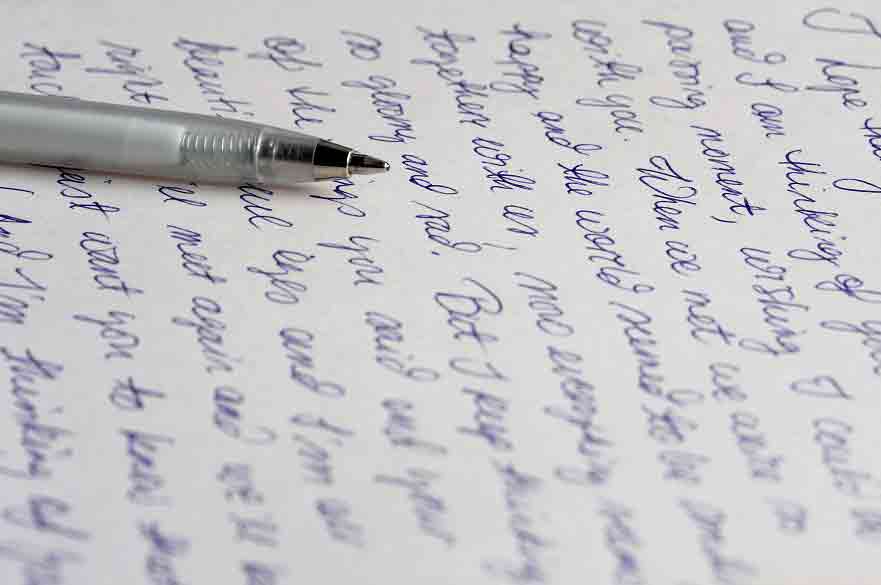 I hope
and I am thinking of you
passing moment, wishing I could be
with you. When we met we were so
happy and the world seemed to be
together with us, now everything
so gloomy and sad. But I keep thinking
of the you said and your
eyes and I'm
right meet again and we'll
just want you to know that
and I'm thinking of you